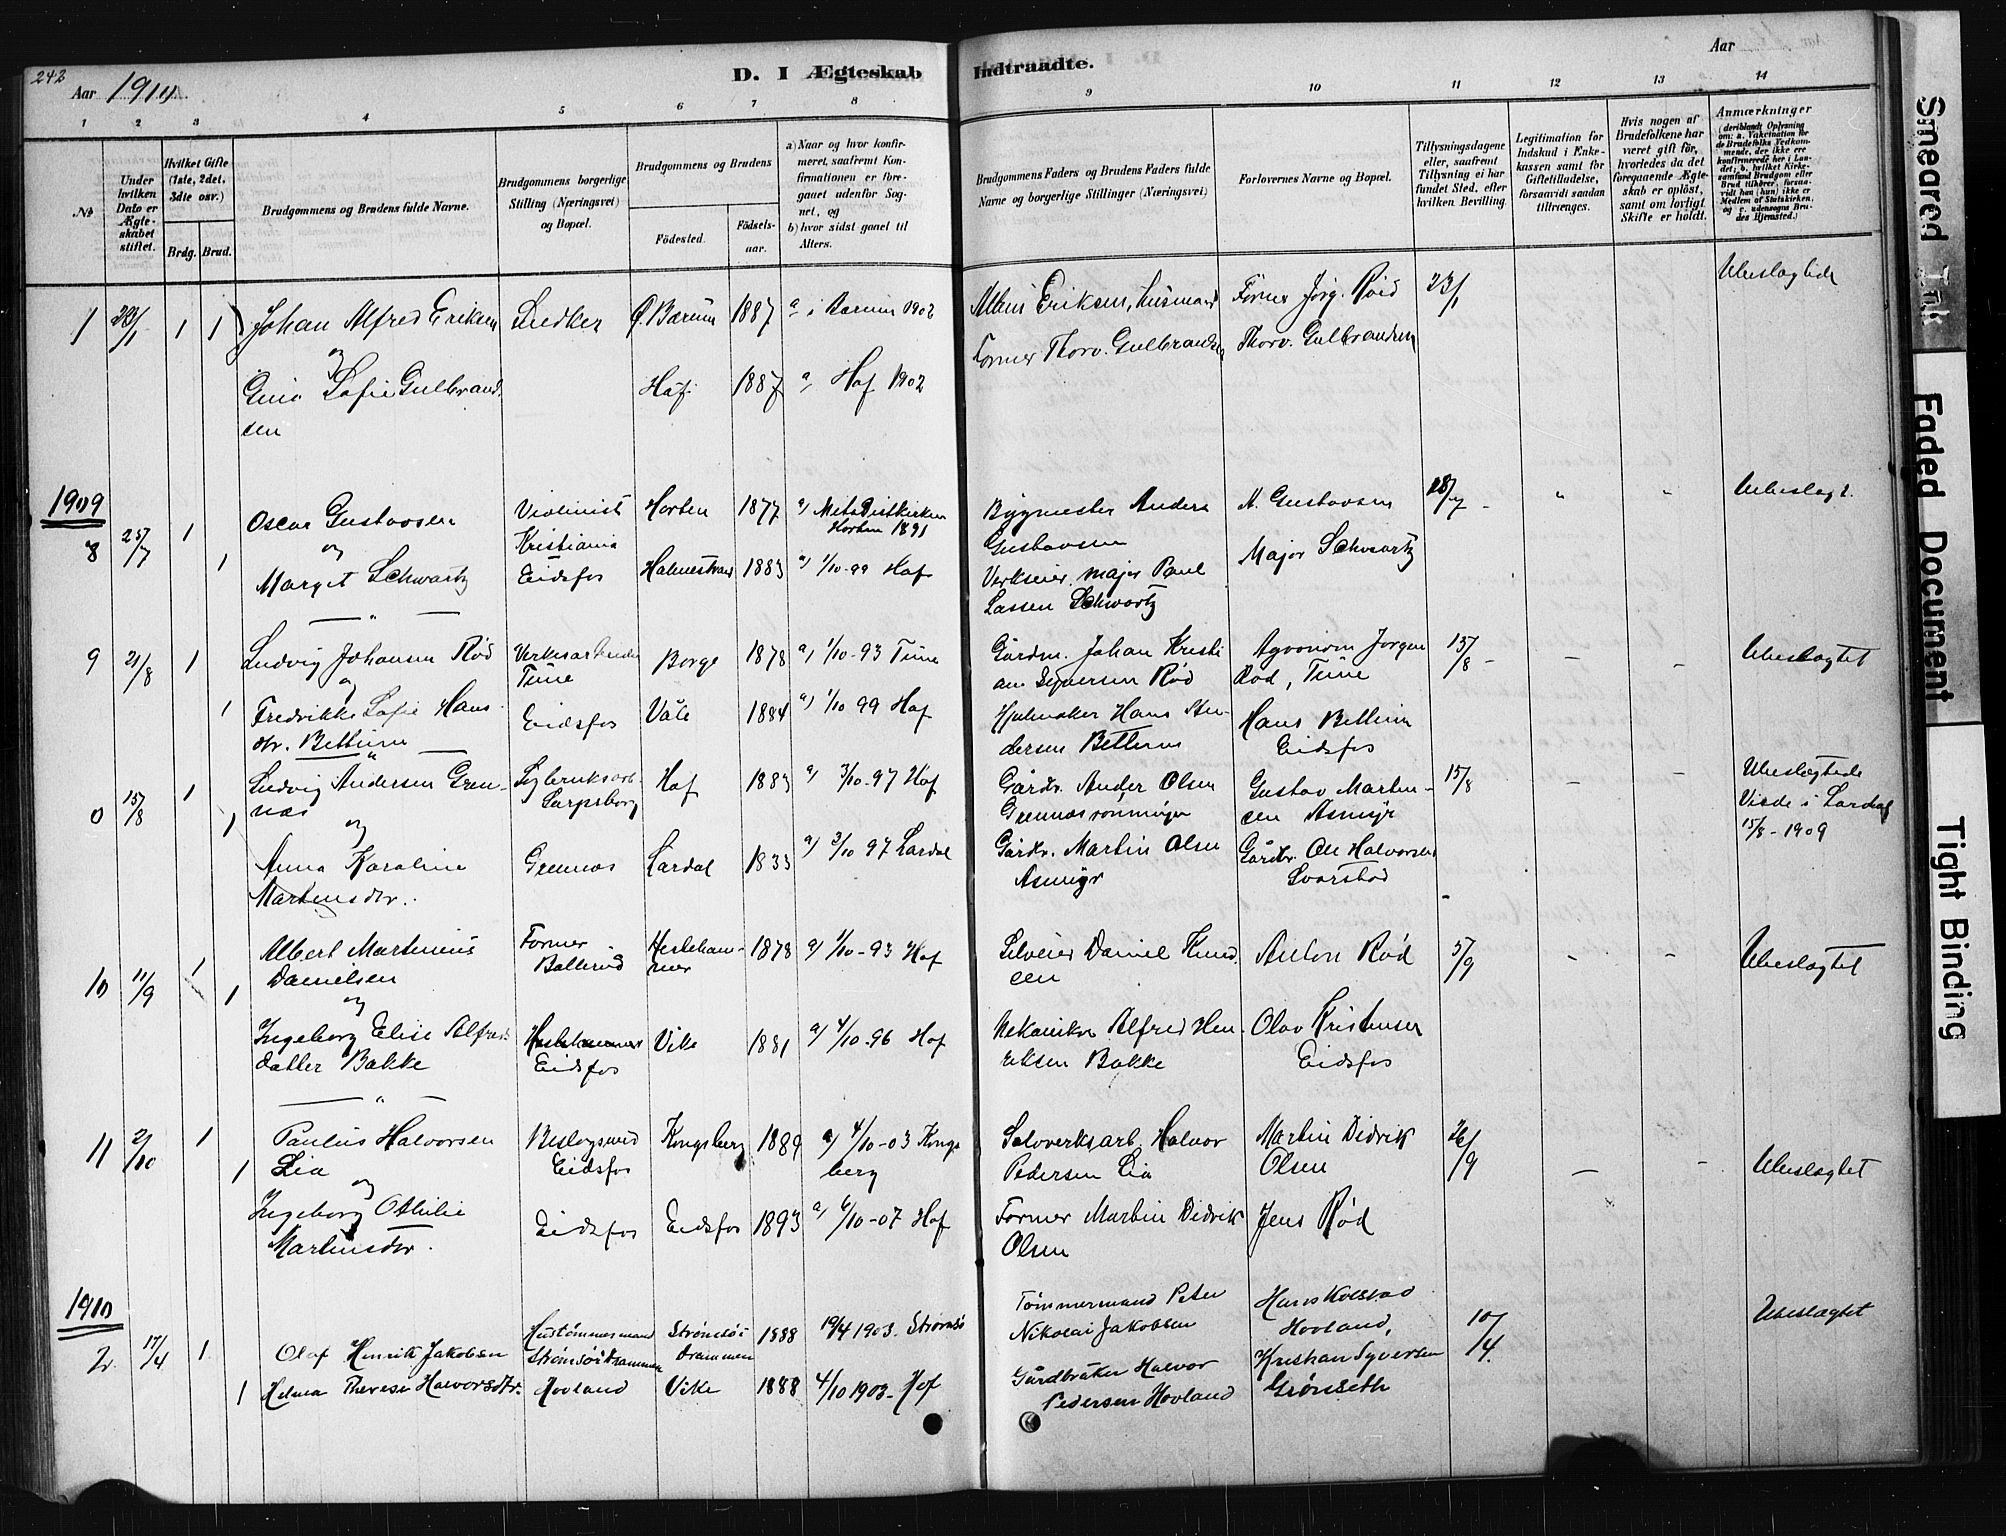 242
Aar 1910.
D. I Ægteskab
Indtraadte.
Aar
1 2 3 4 5 6 7 8 9 10 11 12 13 14
No
Under hvilken Dato er Ægteskabet stiftet.
Hvilket Gifte (1ste, 2det, 3die osv.)
Brdg. Brud.
Brudgommens og Brudens fulde Navne.
Brudgommens borgerlige Stilling (Næringsvei) og Bopæl.
Brudgommens og Brudens
Fødested.
Fødsels-
aar.
a) Naar og hvor konfir-
meret, saafremt Kon-
firmationen er fore-
gaaet udenfor Sog-
net, og
b) hvor sidst gaaet til
Alters.
Brudgommens Faders og Brudens Faders fulde
Navne og borgerlige Stillinger (Næringsvei)
Forlovernes Navne og Bopæl.
Tillysningsdagene
eller, saafremt
Tillysning ei har
fundet Sted, efter
hvilken Bevilling.
Legitimation for
Indskud i Enke-
kassen samt for
Giftetilladelse,
forsaavidt saadan
tiltrænges.
Hvis nogen af
Brudefolkene har
været gift før,
hvorledes da det
foregaaende Ægte-
skab er opløst,
samt om lovligt
Skifte er holdt.
Anmærkninger
(deriblandt Oplysning
om: a. Vakcination for
de Brudefolks Vedkom-
mende, der ikke ere
konfirmerede her i Lan-
det; b. hvilket Kirke-
samfund Brudgom eller
Brud tilhører, forsaa-
vidt han (hun) ikke er
Medlem af Statskirken,
og c. udensogns Bru-
des Hjemsted.)
1 1 1 Johan Alfred Eriksen Ø. Bærum 1887 1902
Eriksen, husmand Former Jørg. Røed 23/1
og
Sofie Gulbrand-
sen Hof 1887 a) Hof 1902
Former Thorv. Gulbrandsen Thorv. Gulbrandsen
1909
8 25/7 1 Oscar Gustavsen Violinist Kristiania Horten 1877 a) Metodistkirken Horten 1891
Bygmester Anders Gustavsen A. Gustavsen 18/7 - " " Ubeslægt.
og
1 Margit Schwartz Eidsfos Holmestrand 1883 a) 1/10-99 Hof
Verkseier, major Paul
Lassen Schwartz Major Schwartz
9 21/8 1 Ludvig Johansen Rød Verksarbeider Tune Borge 1878 a) 1/10-93 Tune
Gårdm. Johan Kristi
an Syversen Rød Agronom Jørgen Rød, Tune 15/8 - - - Ubeslægtet
og
1 Fredrikke Sofie Hans
dtr. Bettum Eidsfos Våle 1884 a) 1/10 99 Hof
Hjulmaker Hans An-
dersen Bettum Hans Bettum Eidsfos
0 15/8 1 Ludvig Andersen Gren-
nes Sarpsborg Hof 1883 a) 3/10-97 Hof
Gårdbr. Anders Olsen Gustav Marten-
sen Asmyr 15/8 - - Ubeslægtede
Viede i Lardal
15/8-1909
og
1 Anna Karoline
Martensdtr. Grennes Lardal a) 3/10 97 Lardal
Gårdbr. Martin Olsen
Asmyr Gårdbr. Ole Halvorsen
Svarstad
10 11/9 1 Albert Martinius
Danielsen Former Hesteham-
mer 1878 a) 1/10-93 Hof
Selveier Daniel Knud
sen Anton Rød 5/9 - - Ubeslægtet
og
1 Ingeborg Elise Alfreds
datter Bakke Hestehammer Eidsfos Vike 1881 a) 4/10-96 Hof
Mekaniker Alfred Hen
riksen Bakke Olav Kristensen
Eidsfos
11 2/10 1 Paulus Halvorsen
Lia Beslagsmed
Eidsfos Kongsberg 1889 a) 4/10-03 Kongs
berg
Sølvverksarb. Halvor
Pedersen Lia Martin Didrik
Olsen 26/9 - - Ubeslægtet
og
1 Ingeborg Othilie
Martinsdtr. Eidsfos Eidsfos 1893 a) 6/10-07 Hof
Former Martin Didrik
Olsen Jens Rød
1910
2. 17/4 1 Olaf Henrik Jakobsen Hustømmermand
Strømsø i Drammen Strømsø i
Drammen 1888 19/4 1903. Strømsø
Tømmermand Peter
Nikolai Jakobsen Hans Kolstad
Hovland, 10/4. Ubeslægtet
1 Helena Therese Halvorsdtr. Hovland Vike 1888 4/10 1903- Hof
Gårdbruker Halvor
Pedersen Hovland Kristian Syversen
Grønseth
Smeared Ink
Faded Document
Tight Binding